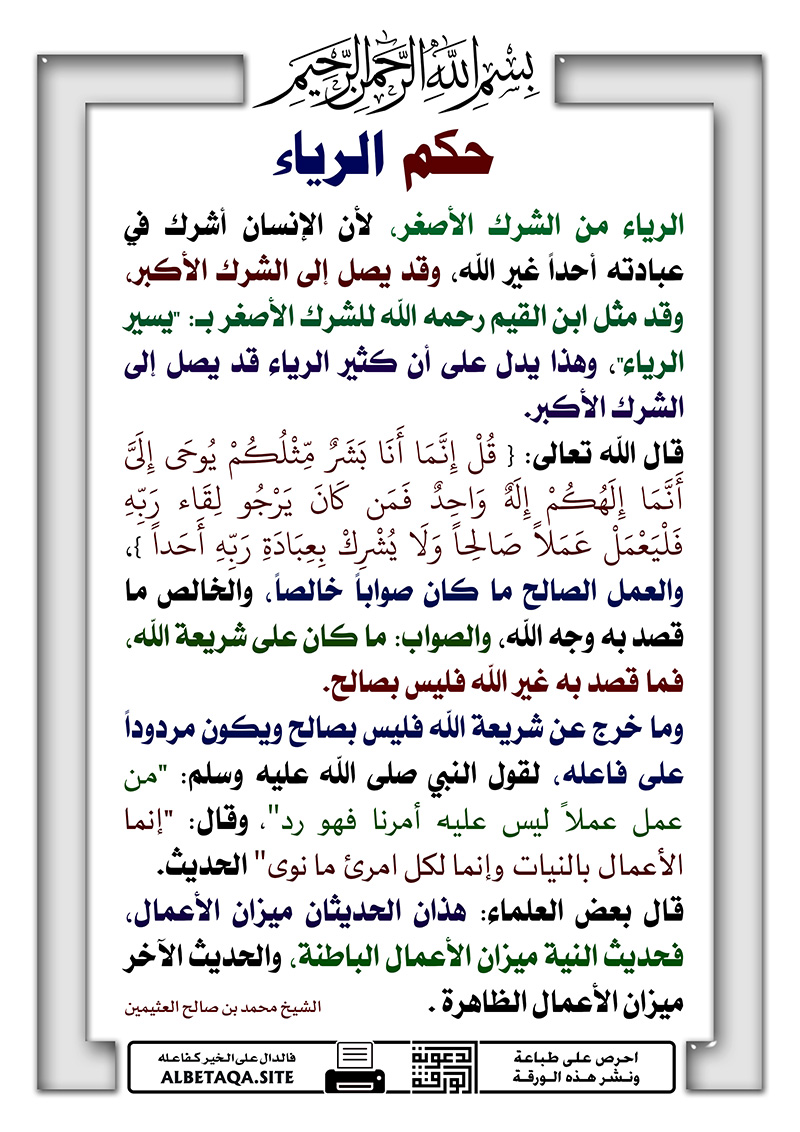 بِسْمِ اللَّهِ الرَّحْمَنِ الرَّحِيمِ
حكم الرياء
الرياء من الشرك الأصغر، لأن الإنسان أشرك في
عبادته أحداً غير الله، وقد يصل إلى الشرك الأكبر،
وقد مثل ابن القيم رحمه الله للشرك الأصغر بـ: "يسير
الرياء"، وهذا يدل على أن كثير الرياء قد يصل إلى
الشرك الأكبر.
قال الله تعالى: { قُلْ إِنَّمَا أَنَا بَشَرٌ مِّثْلُكُمْ يُوحَى إِلَيَّ
أَنَّمَا إِلَهُكُمْ إِلَهٌ وَاحِدٌ فَمَن كَانَ يَرْجُو لِقَاء رَبِّهِ
فَلْيَعْمَلْ عَمَلاً صَالِحاً وَلَا يُشْرِكْ بِعِبَادَةِ رَبِّهِ أَحَداً }،
والعمل الصالح ما كان صواباً خالصاً، والخالص ما
قصد به وجه الله، والصواب: ما كان على شريعة الله،
فما قصد به غير الله فليس بصالح.
وما خرج عن شريعة الله فليس بصالح ويكون مردوداً
على فاعله، لقول النبي صلى الله عليه وسلم: "من
عمل عملاً ليس عليه أمرنا فهو رد"، وقال: "إنما
الأعمال بالنيات وإنما لكل امرئ ما نوى" الحديث.
قال بعض العلماء: هذان الحديثان ميزان الأعمال،
فحديث النية ميزان الأعمال الباطنة، والحديث الآخر
ميزان الأعمال الظاهرة .
الشيخ محمد بن صالح العثيمين
احرص على طباعة
ونشر هذه الورقة
الورقة
الدعوية
فالدال على الخير كفاعله
ALBETAQA.SITE